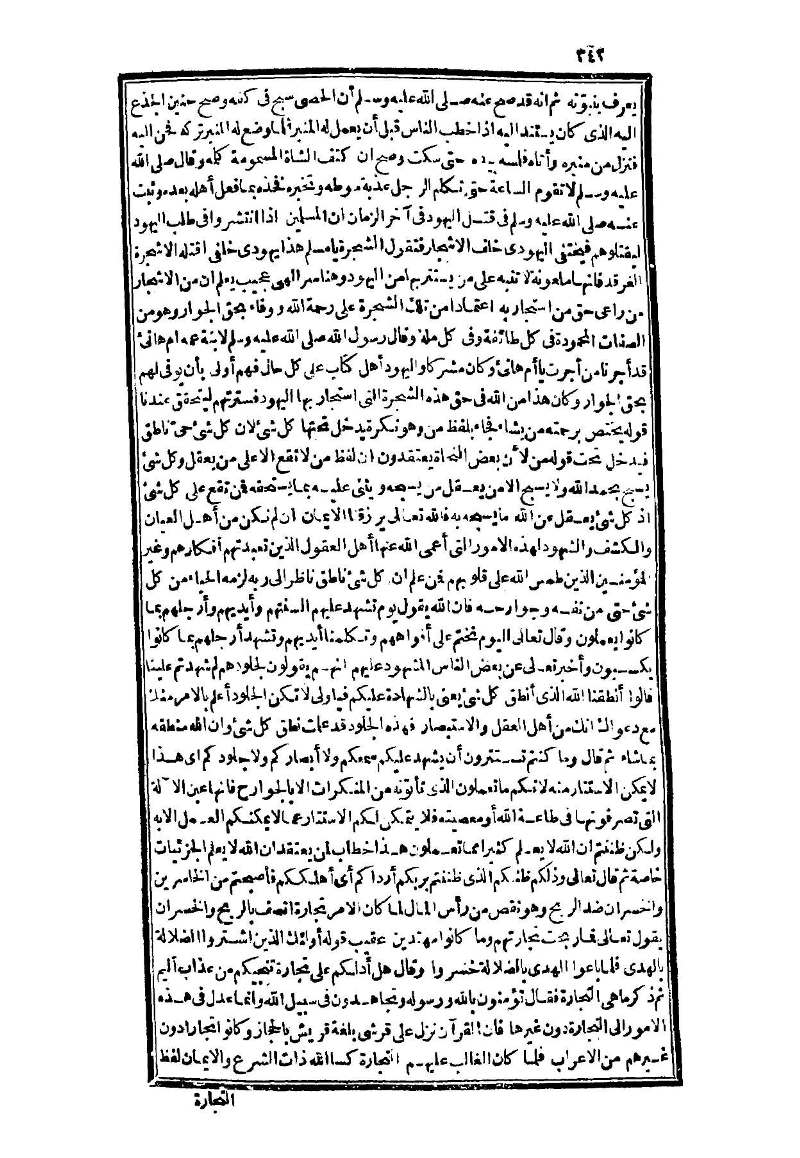 ٣٤٢
يعرف بنبوّته ثم انه قد صح عنه صلى الله عليه وسلم أن الحصى سبح فى كفه وصح حنين الجذع
اليه الذى كان يستند اليه اذا خطب الناس قبل أن يعمل له المنبر فلما وضع له المنبر تركه فحن اليه
فنزل من منبره وأتاه فلمسه بيده حتى سكت وصح ان كتف الشاة المسمومة كله وقال صلى الله
عليه وسلم لا تقوم الساعة حتى تكلم الرجل عذبة سوطه وتخبره فخذه بما فعل أهله بعده وثبت
عنه صلى الله عليه وسلم فى قتل اليهود فى آخر الزمان ان المسلمين اذا انتشروا فى طلب اليهود
ليقتلوهم فيختفى اليهودى خلف الاشجار فتقول الشجرة يا مسلم هذا يهودى خلفى اقتله الا شجرة
الغرقد فانها ملعونة لا تنبه على من يستتر بها من اليهود وهنا سر الهى عجيب يعلم ان من الاشجار
من راعى حق من استجار به اعتمادا من تلك الشجرة على رحمة الله ووفاء بحق الجوار وهو من
الصفات المحمودة فى كل طائفة وفى كل ملة وقال رسول الله صلى الله عليه وسلم لابنة عمه ام هانئ
قد أجرنا من أجرت يا أم هانئ وكان مشركا واليهود أهل كتاب على كل حال فهم أولى بأن يوفى لهم
بحق الجوار وكان هذا من الله فى حق هذه الشجرة التى استجار بها اليهود فسترتهم ليتحقق عندنا
قوله يختص برحمته من يشاء فجاء بلفظ من وهو نكرة يدخل تحتها كل شئ لان كل شئ حى ناطق
فيدخل تحت قوله من لأن بعض النحاة يعتقدون ان لفظ من لا تقع الا على من يعقل وكل شئ
يسبح بحمد الله ولا يسبح الا من يعقل من يسبحه ويثنى عليه بما يستحقه فمن تقع على كل شئ
اذ كل شئ يعقل عن الله ما يسبحه به فالله تعالى يرزقنا الايمان ان لم نكن من أهل العيان
والكشف والشهود لهذه الامور التى أعمى الله عنها أهل العقول الذين تعبدتهم أفكارهم وغير
المؤمنين الذين طمس الله على قلوبهم فمن علم ان كل شئ ناطق ناظر الى ربه لزمه الحياء من كل
شئ حتى من نفسه وجوارحه فان الله يقول يوم تشهد عليهم السنتهم وأيديهم وأرجلهم بما
كانوا يعملون وقال تعالى اليوم نختم على أفواههم وتكلمنا أيديهم وتشهد أرجلهم بما كانوا
يكسبون وأخبر تعالى عن بعض الناس المشهود عليهم انهم يقولون لجلودهم لم شهدتم علينا
قالوا أنطقنا الله الذى أنطق كل شئ يعنى بالشهادة عليكم فياولى لا تكن الجلود أعلم بالامر منك
مع دعواك انك من أهل العقل والاستبصار فهذه الجلود قد علمت نطق كل شئ وان الله منطقه
بما شاء ثم قال وما كنتم تستترون أن يشهد عليكم سمعكم ولا أبصاركم ولا جلودكم اى هذا
لا يمكن الاستتار منه لانكم ما تعملون الذى تأتونه من المنكرات الا بالجوارح فانها عين الآلة
التى تصرفونها فى طاعة الله أو معصيته فلا يتمكن لكم الاستتار عما لا يمكنكم العمل الا به
ولكن ظننتم ان الله لا يعلم كثيرا مما تعملون هذا خطاب لمن يعتقد ان الله لا يعلم الجزئيات
خاصة ثم قال تعالى وذلكم ظنكم الذى ظننتم بربكم أرداكم أى أهلككم فأصبحتم من الخاسرين
والخسران ضد الربح وهو نقص من رأس المال لما كان الامر تجارة اتصف بالربح والخسران
يقول تعالى فما ربحت تجارتهم وما كانوا مهتدين عقيب قوله أولئك الذين اشتروا الضلالة
بالهدى فلما باعوا الهدى بالضلالة خسروا وقال هل أدلكم على تجارة تنجيكم من عذاب أليم
ثم ذكر ما هى التجارة فقال تؤمنون بالله ورسوله وتجاهدون فى سبيل الله وأنما عدل فى هذه
الامور الى التجارة دون غيرها فان القرآن نزل على قرشى بلغة قريش بالحجاز وكانوا تجارا دون
غيرهم من الاعراب فلما كان الغالب عليهم التجارة كسا الله ذات الشرع والايمان لفظ
التجارة